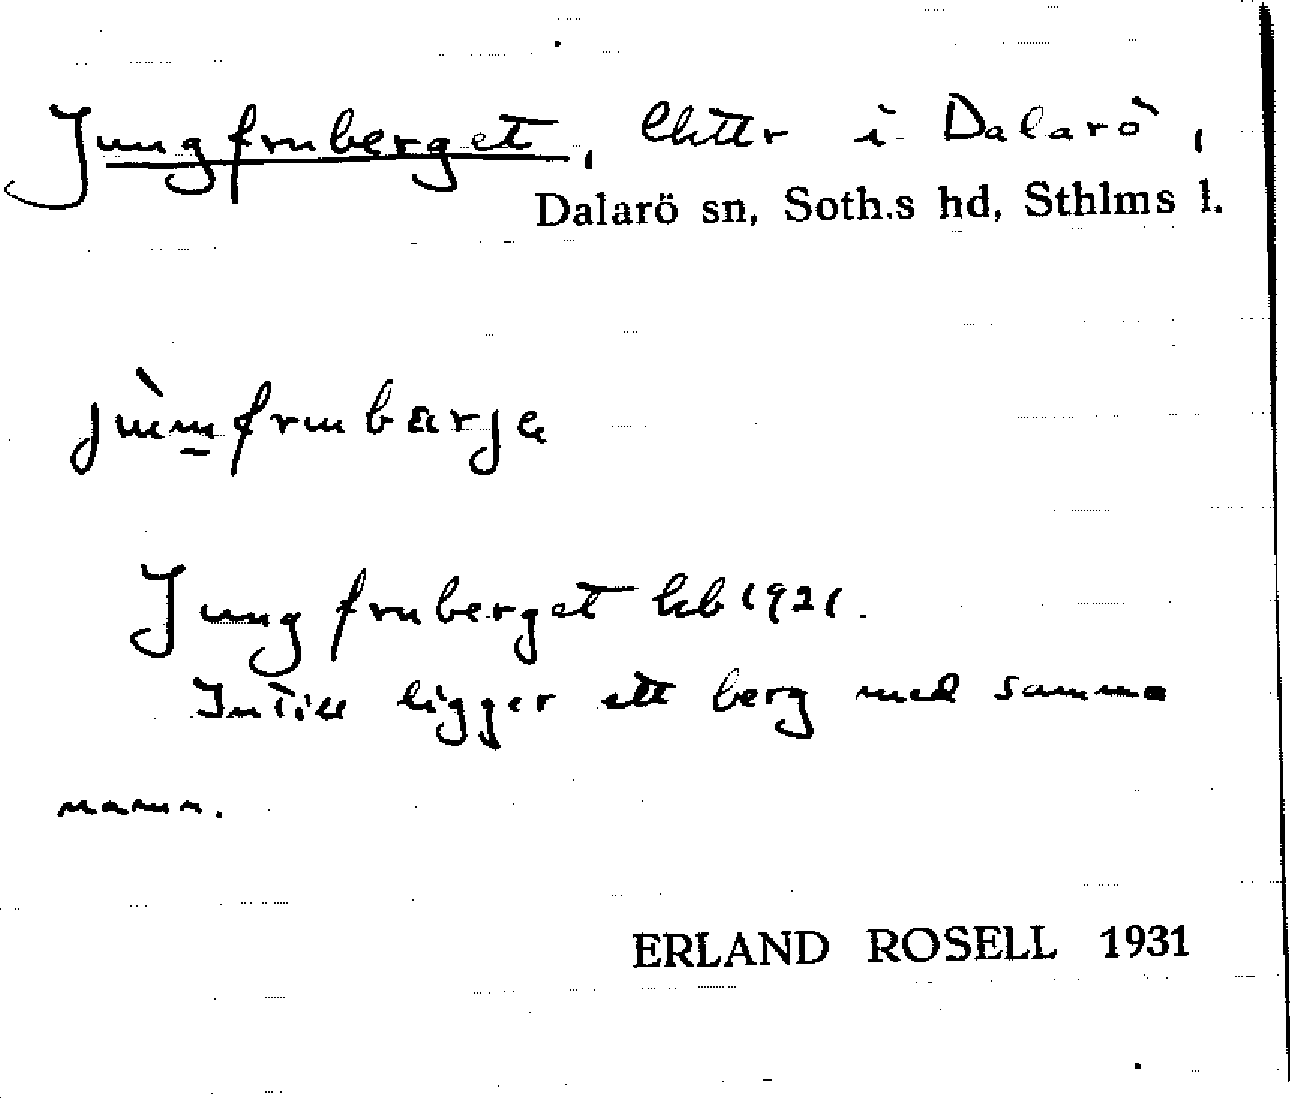 Jungfruberget, lhttr i Dalarö,
Dalarö sn, Soth.s hd, Sthlms l.
jùmfrubärję
Jungfruberget kb 1921.
Intill ligger ett berg med samma
namn.
ERLAND ROSELL 1931